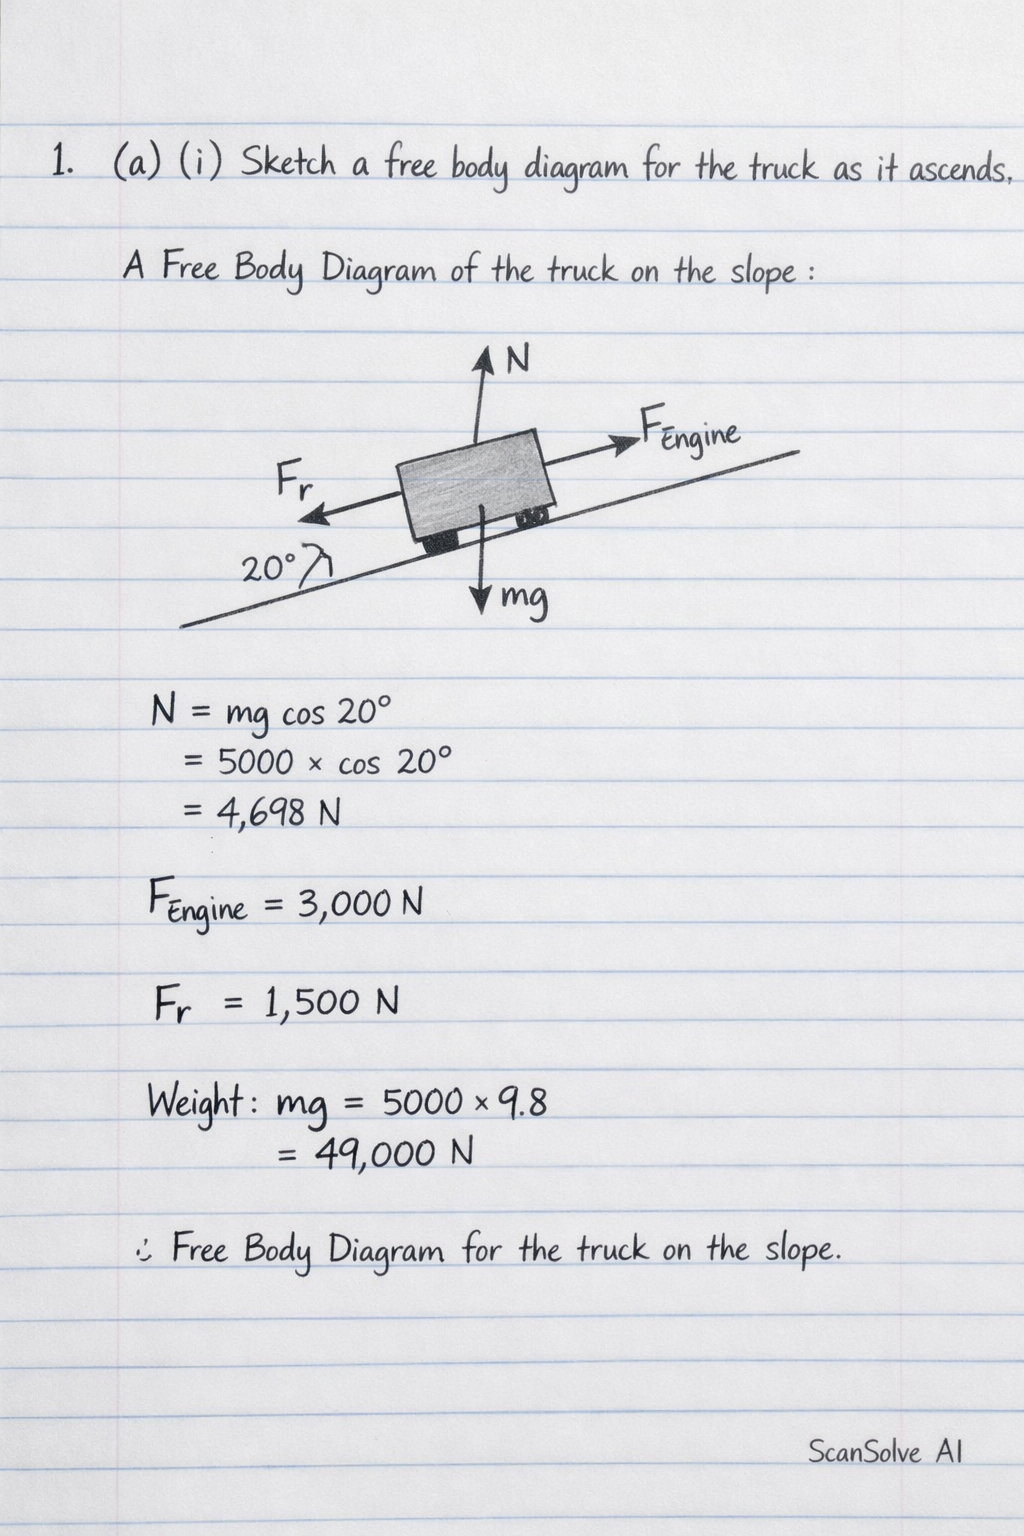 1. (a) (i) Sketch a free body diagram for the truck as it ascends.
A Free Body Diagram of the truck on the slope :
N
F Engine
Fr
20°
mg
N = mg cos 20°
= 5000 × cos 20°
= 4,698 N
F Engine = 3,000 N
Fr = 1,500 N
Weight: mg = 5000 × 9.8
= 49,000 N
∴ Free Body Diagram for the truck on the slope.
ScanSolve AI